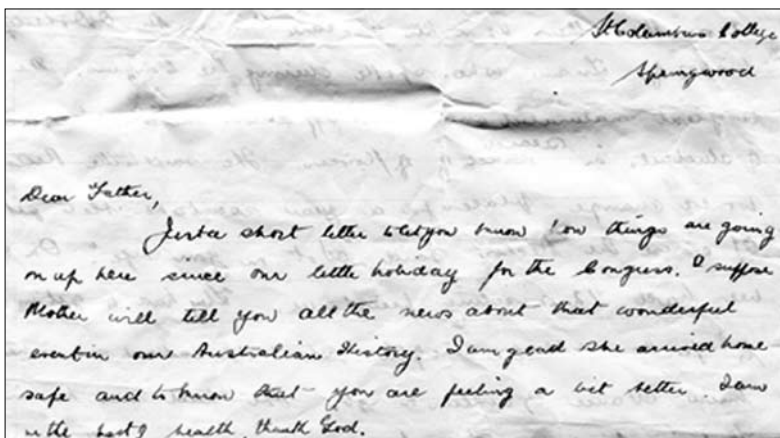 St Columbas College
Springwood
Dear Father,
Just a short letter to let you know how things are going
on up here since our little holiday for the Congress. I suppose
Mother will tell you all the news about that wonderful
event in our Australian History. I am glad she arrived home
safe and to know that you are feeling a bit better I am
in the best of health, thank God.